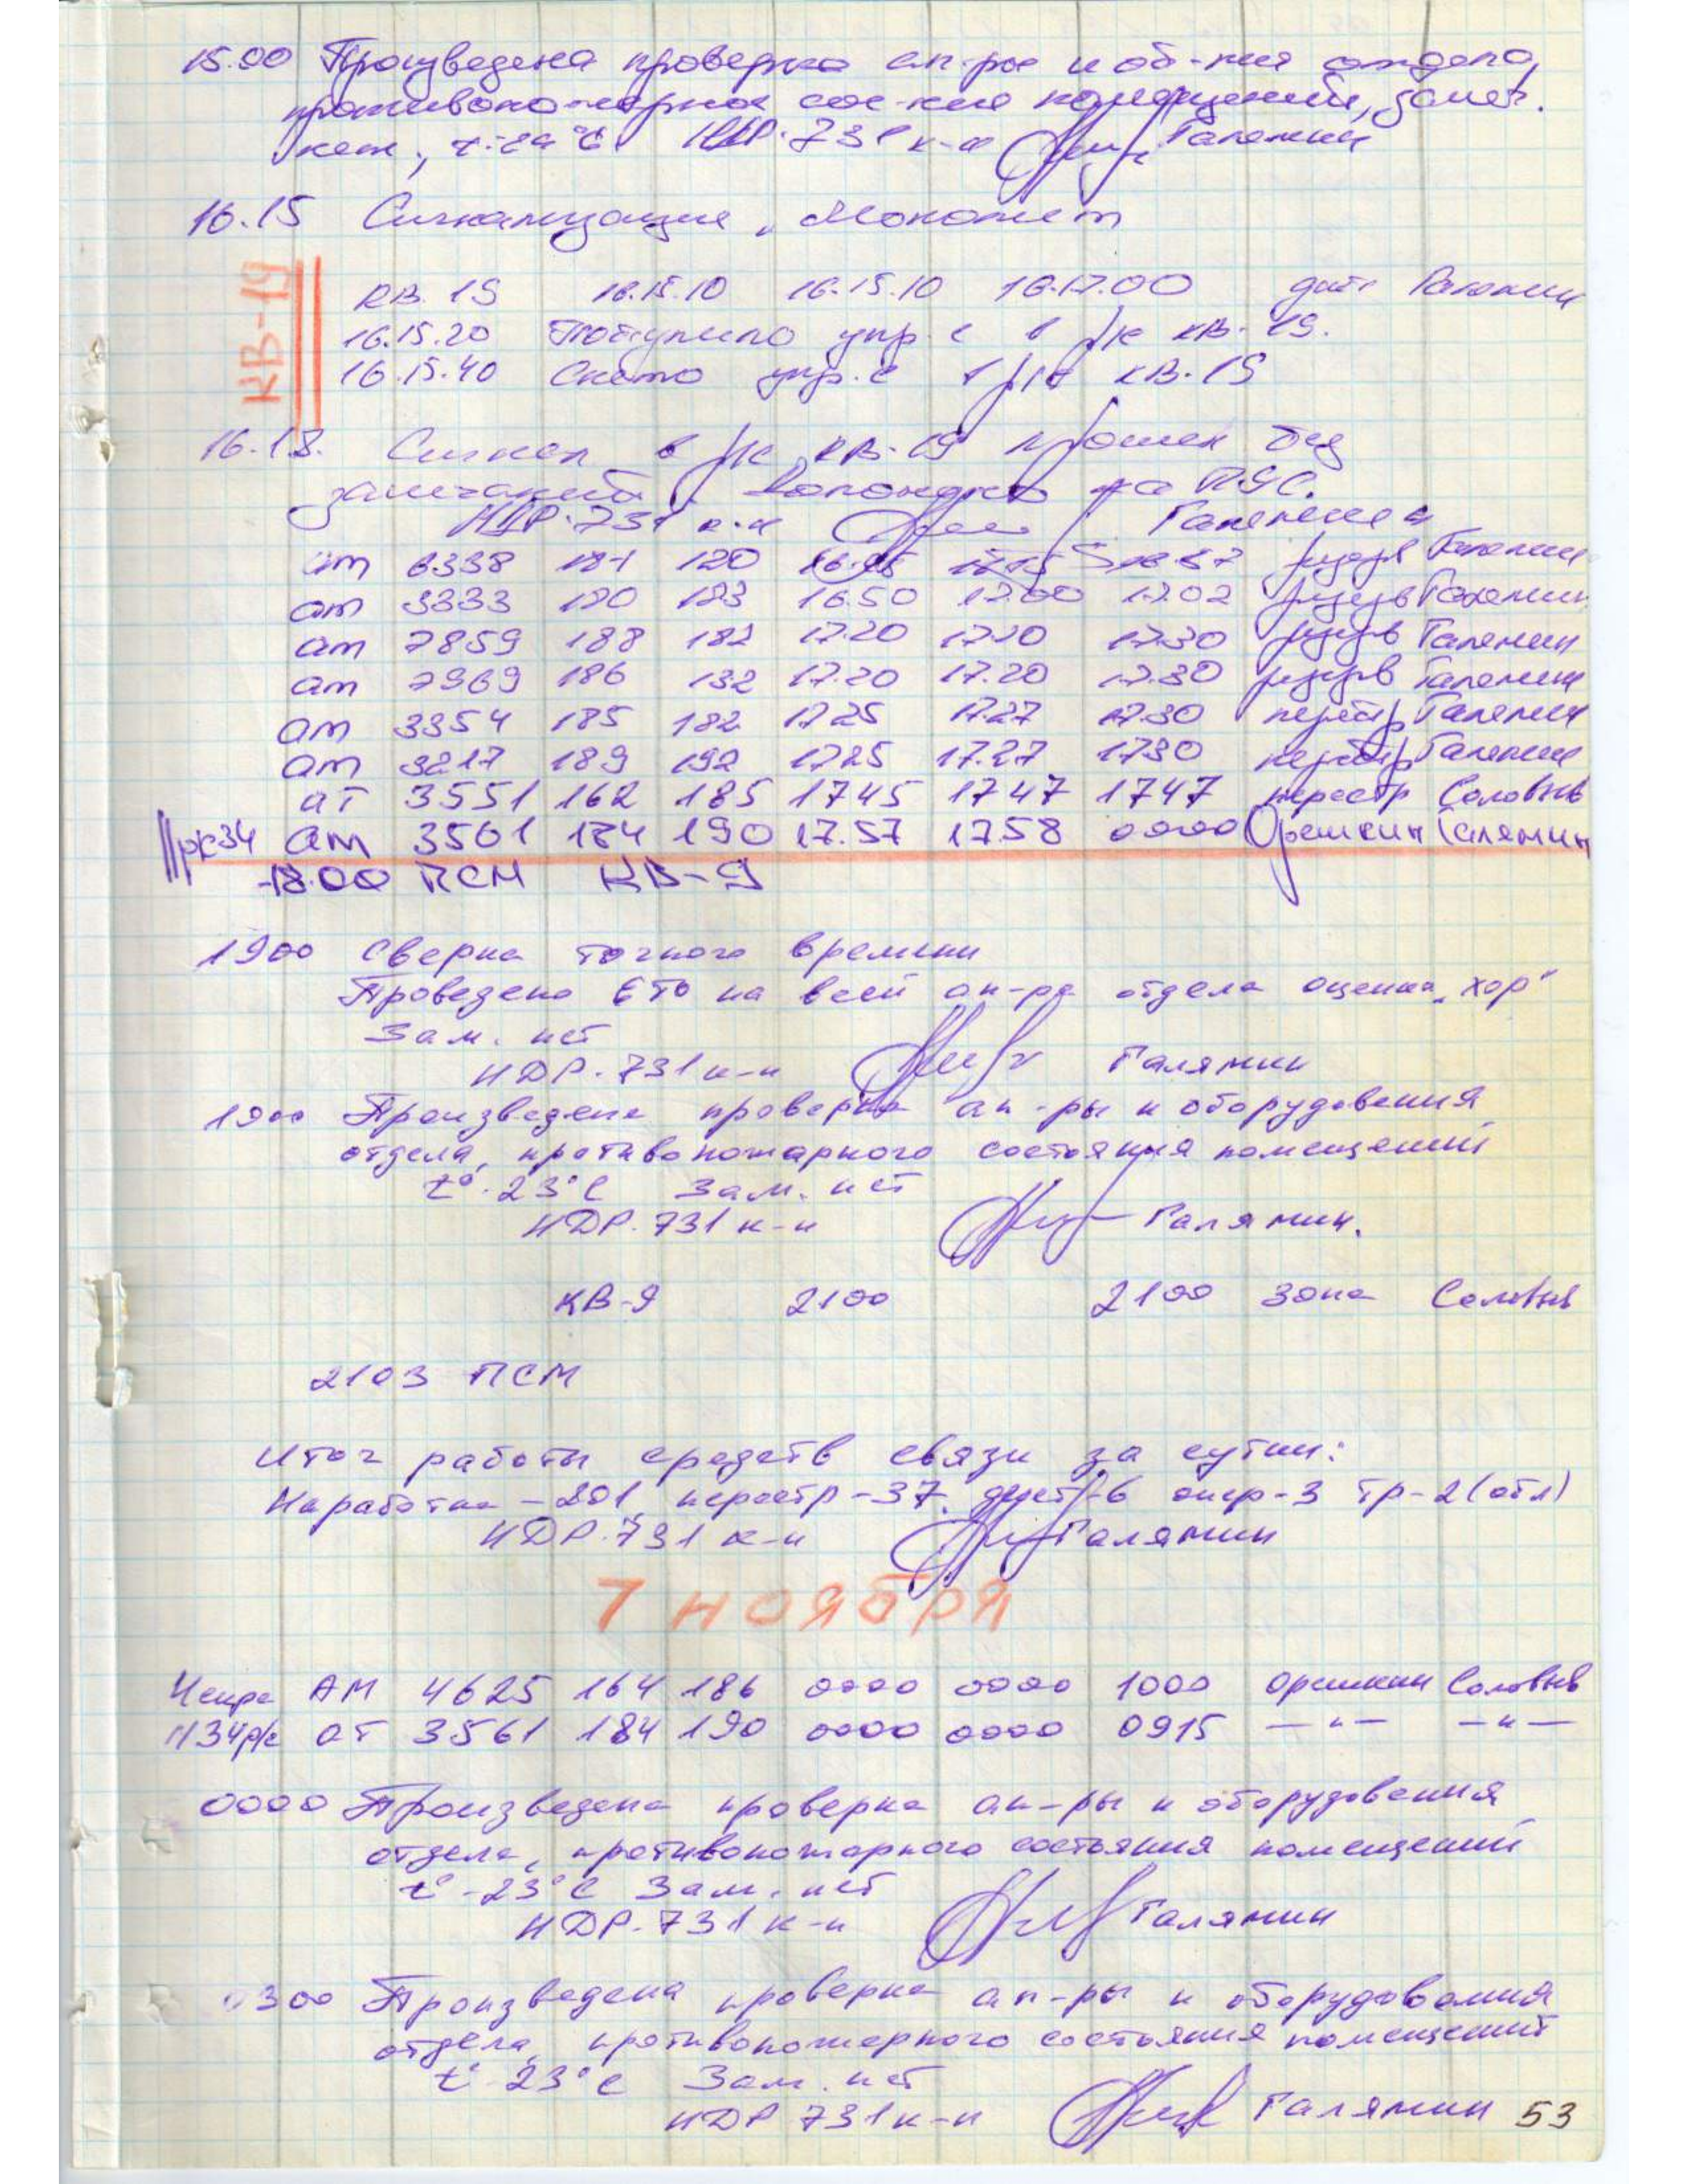 15.00 Произведена проверка ап-ры и об-ния отдела,
противопожарное сос-ние помещений, замеч.
нет, t-24°C НДР-731 к-н Галямин
16.15 Сигнализация "Монолит
КВ-19
КВ. 19 16.15.10 16.15.10 16.17.00 Галямин
16.15.20 Поступило упр. с в р/к КВ-19.
16.15.40 Снято упр. с р/к КВ-19
16.18. Сигнал в р/к КВ-19 прошел без
замечаний на ПЯС.
НДР-731 к-н Галямин
ат 6338 181 120 резерв Галямин
ат 3333 190 193 16.50 17.00 17.02 резерв Галямин
ат 7859 188 182 17.20 17.20 17.30 резерв Галямин
ат 7969 186 132 17.20 17.20 17.30 резерв Галямин
ат 3354 185 182 17.25 17.27 17.30 перестр Галямин
ат 3217 189 192 1725 17.27 1730 перестр Галямин
ат 3551 162 185 1745 1747 1747 перестр Соловьев
р/с34 ат 3561 184 190 17.57 17.58 0000 Орешкин Галямин
18.00 ПСМ КВ-9
1900 Сверка точного времени
Проведено ЕТО на всей ап-ре отдела оценка "хор"
Зам. нет
НДР-731 к-н Галямин
1900 Произведена проверка ап-ры и оборудования
отдела, противопожарного состояния помещений
t°-23°C Зам. нет
НДР-731 к-н Галямин.
КВ-9 2100 2100 зона Соловьев
2103 ПСМ
Итог работы средств связи за сутки:
Наработка - 201 перестр-37 опер-3 тр-2 (отл)
НДР-731 к-н Галямин
7 НОЯБРЯ
АМ 4625 164 186 0000 0000 1000 Орешкин Соловьев
34р/с АТ 3561 184 190 0000 0000 0915 —"— —"—
0000 Произведена проверка ап-ры и оборудования
отдела, противопожарного состояния помещений
t°-23°C Зам. нет
НДР-731 к-н Галямин
0300 Произведена проверка ап-ры и оборудования
отдела, противопожарного состояния помещений
t°-23°C Зам. нет
НДР 731 к-н Галямин 53